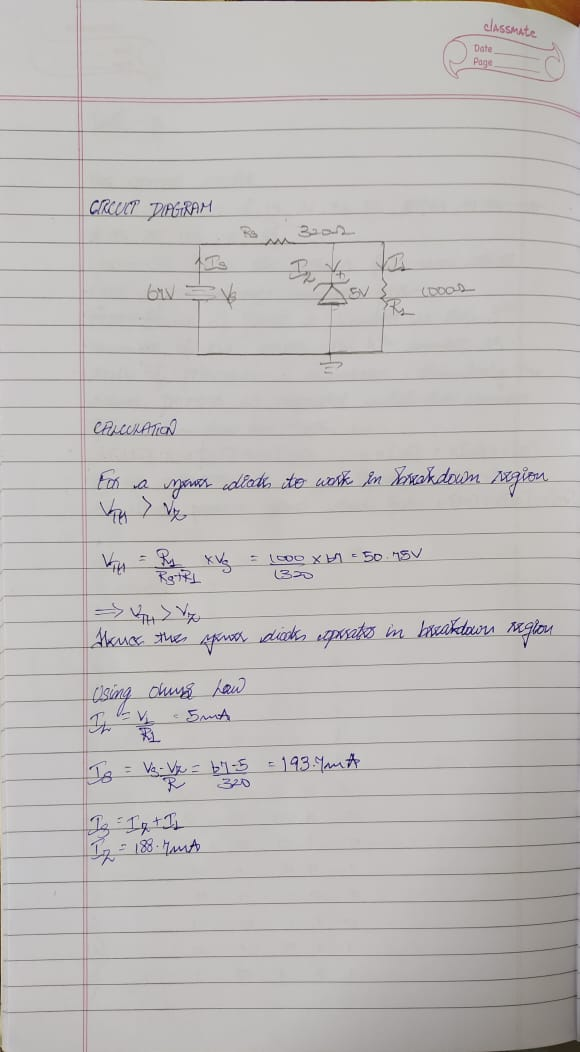 classmate
Date
Page
CIRCUIT DIAGRAM
Rs 320Ω
Is
Iz
V
+
IL
67V
Vs
5V
RL
1000Ω
CALCULATION
For a zener diode to work in breakdown region
VTH > Vz
VTH = RL/(Rs+RL) × Vs = 1000/1320 × 67 = 50.75V
⇒ VTH > Vz
Hence the zener diode operates in breakdown region
Using ohms Law
IL = VL/RL = 5mA
Is = (Vs-Vz)/R = (67-5)/320 = 193.7mA
Is = Iz + IL
Iz = 188.7mA